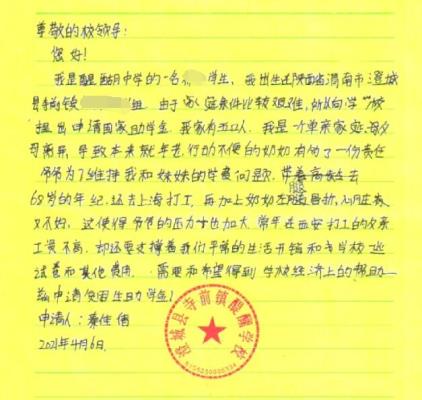 尊敬的校领导:
您好!
我是醍醐中学的一名 学生,我出生在陕西省渭南市澄城
县 镇 组 由于 家庭条件比较艰难,所以向学校
提出申请国家助学金,我家有五口人,我是一个单亲家庭,父
母离异,导致本来就年老行动不便的奶奶有多了一份责任
爷爷为了维持我和妹妹的学费问题,
68岁的年纪,还去上海打工,再加上奶奶在 腿骨折,心脏病
又不好,这使得爷爷的压力 加大,常年在西安打工的父亲
工资不高,却还要支撑着我们平常的生活开销和 学校一些
试卷而其他费用,需要和希望得到学校经济上的帮助
申请 助学金!
申请人:秦佳倩
2021年4月6日
澄城县寺前镇醍醐学校